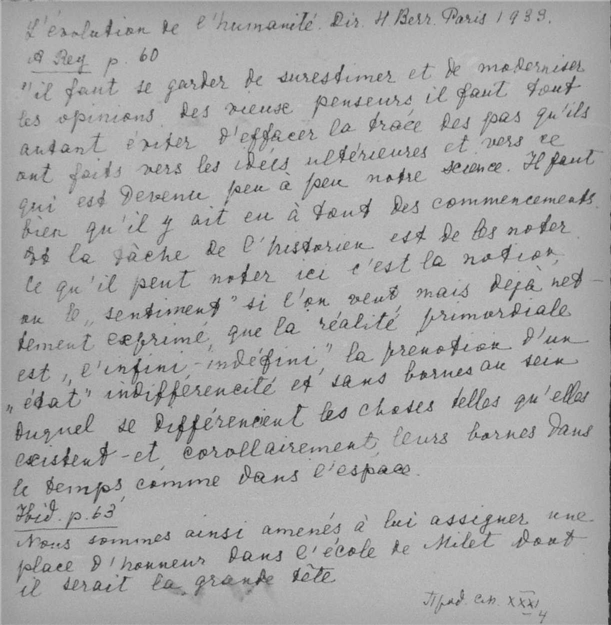 L'évolution de l'humanité. Dir. H Berr. Paris 1933.
A Rey p. 60
"il faut se garder de surestimer et de moderniser
les opinions des vieux penseurs, il faut tout
autant éviter d'effacer la trace des pas qu'ils
ont faits vers les idées ultérieures et vers ce
qui est devenu peu à peu notre science. Il faut
bien qu'il y ait eu à tout des commencements
et la tâche de l'historien est de les noter
Ce qu'il peut noter ici c'est la notion,
ou le „sentiment" si l'on veut mais déjà net-
tement exprimé, que la réalité primordiale
est „l'infini-indéfini" la prenotion d'un
„état" indifférencité et sans bornes au sein
duquel se différencient les choses telles qu'elles
existent - et corollairement, leurs bornes dans
le temps comme dans l'espace.
Ibid. p. 63
Nous sommes ainsi amenés à lui assigner une
place d'honneur dans l'école de Milet dont
il serait la grande tête
Прод. сл. XXXI
4